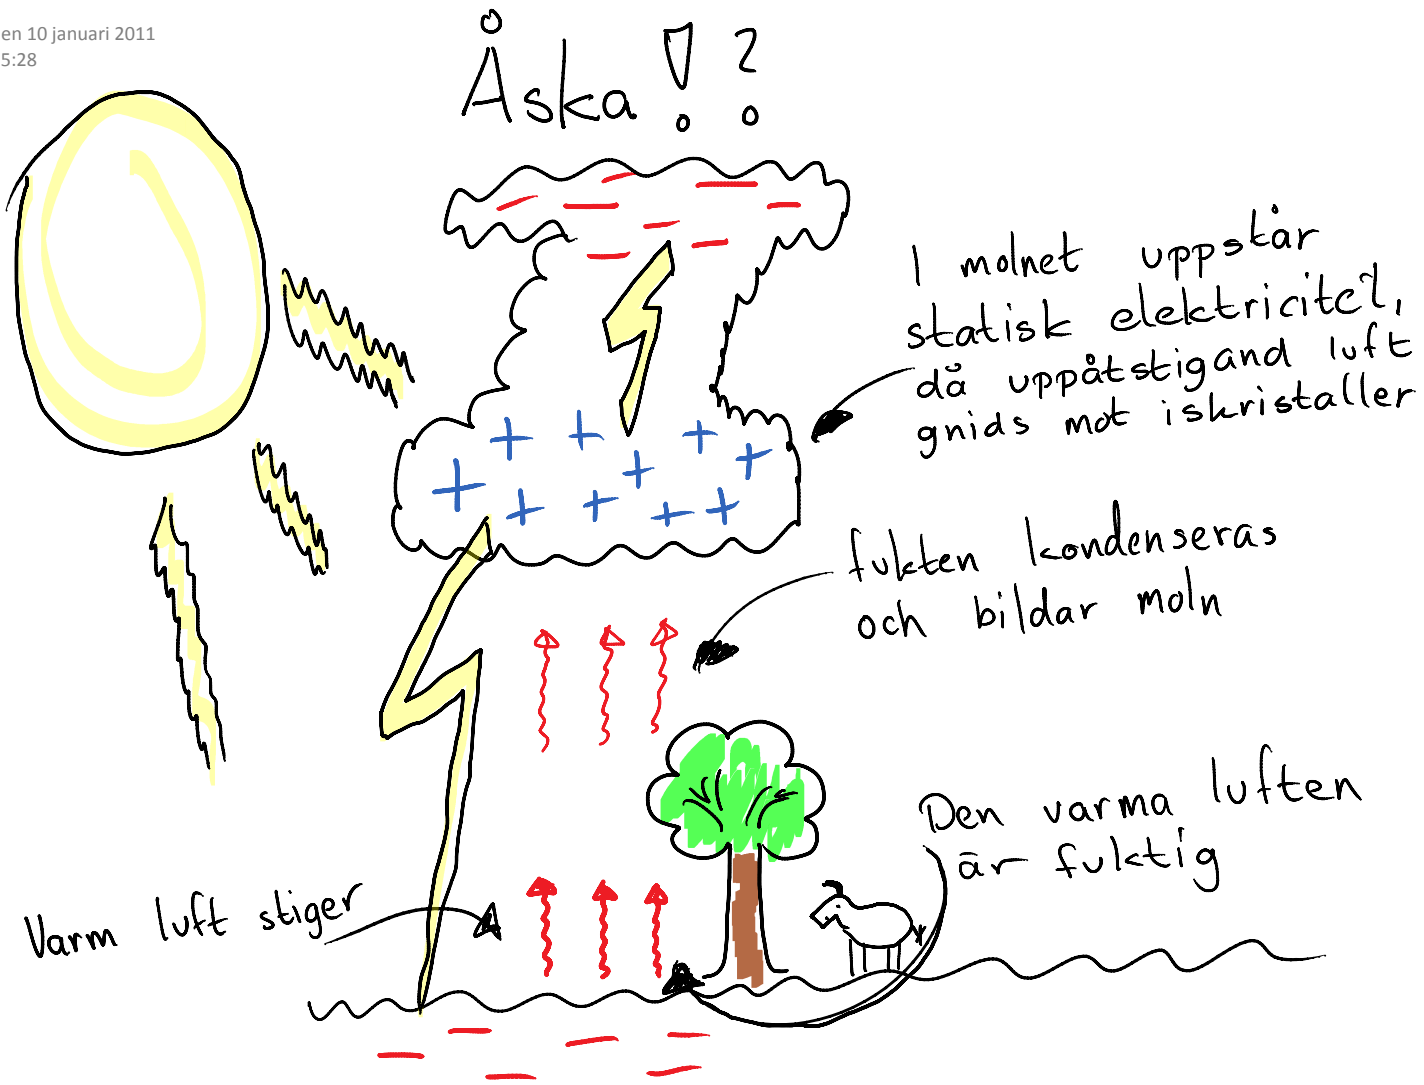 en 10 januari 2011
5:28
Åska !?
I molnet uppstår
statisk elektricitet,
då uppåtstigand luft
gnids mot iskristaller
fukten kondenseras
och bildar moln
Den varma luften
är fuktig
Varm luft stiger